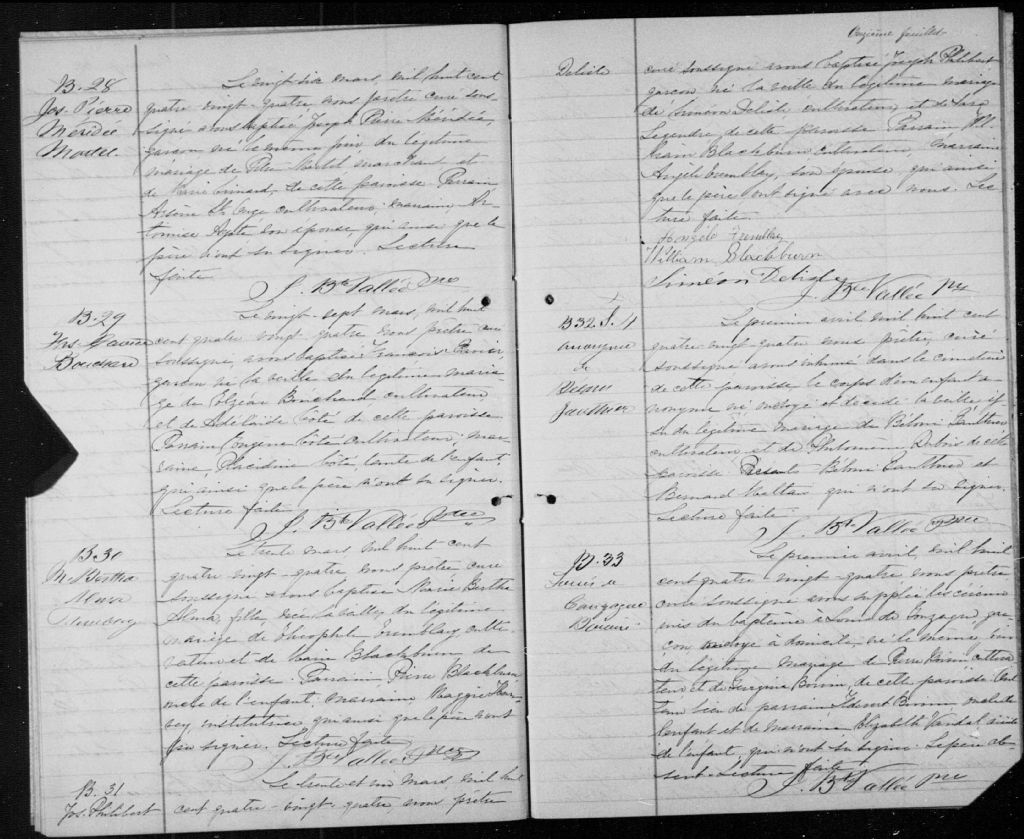 B. 28
Jos. Pierre
Méridée
Martel.
Le vingt six mars, mil huit cent
quatre vingt-quatre nous prêtre curé sous-
signé avons baptisé Joseph Pierre Méridée,
garçon né le même jour, du légitime
mariage de Martel marchand et
de Marie de cette paroisse. Parrain
cultivateur; marraine, Ar-
son épouse, qui ainsi que le
père n'ont su signer. Lecture
faite.
J. Bte Vallée Ptre
B. 29
Frs. Xavier
Bouchard
Le vingt-sept mars, mil huit
cent quatre vingt quatre nous prêtre curé
soussigné avons baptisé François Xavier
garçon né la veille du légitime maria-
ge de Elzéar Bouchard cultivateur
et de Adélaïde Côté de cette paroisse
Parrain, Eugène Côté cultivateur; mar-
raine, Placidine Côté, tante de l'enfant,
qui ainsi que le père n'ont su signer.
Lecture faite.
J. Bte Vallée Ptre
B. 30
M. Bertha
Alma
Tremblay
Le trente mars mil huit cent
quatre vingt-quatre nous prêtre curé
soussigné avons baptisé Marie Bertha
Alma, fille, née la veille, du légitime
mariage de Théophile Tremblay culti-
vateur et de Marie Blackburn de
cette paroisse. Parrain Pierre Blackburn
oncle de l'enfant; marraine, Maggie Har-
vey, institutrice, qui ainsi que le père n'ont
pu signer. Lecture faite.
J. Bte Vallée Ptre
B. 31
Jos. Philibert
Le trente et un mars, mil huit
cent quatre-vingt-quatre, nous prêtre
Onzième feuillet
Delisle
curé soussigné avons baptisé Joseph Philibert
garçon né la veille du légitime mariage
de Siméon Delisle, cultivateur, et de Sara
Legendre, de cette paroisse Parrain Wil-
liam Blackburn cultivateur, marraine
Angèle Tremblay, son épouse, qui ainsi
que le père ont signé avec nous. Lec-
ture faite.
Angèle Tremblay
William Blackburn
Siméon Delisle
J. Bte Vallée Ptre
B 32 S. 4
anonyme
de
Gauthier
Le premier avril mil huit cent
quatre vingt-quatre nous prêtre, curé
soussigné avons inhumé dans le cimetière
de cette paroisse, le corps d'un enfant a-
nonyme né ondoyé et décédé la veille is-
su du légitime mariage de Béloni Gauthier
cultivateur et de Philomène de cette
paroisse Présents Béloni Gauthier et
Bernard Maltais qui n'ont su signer.
Lecture faite.
J. Bte Vallée Ptre
B. 33
Louis de
Gonzague
Le premier avril, mil huit
cent quatre-vingt-quatre, nous prêtre
curé soussigné avons suppléé les cérémo-
nies du baptême à Louis de Gonzague, gar-
çon ondoyé à domicile, né le même jour
du légitime mariage de Pierre cultiva-
teur et de de cette paroisse
lieu de parrain oncle de
l'enfant et de marraine Elizabeth
de l'enfant, qui n'ont su signer. Le père ab-
sent. Lecture faite.
J. Bte Vallée Ptre